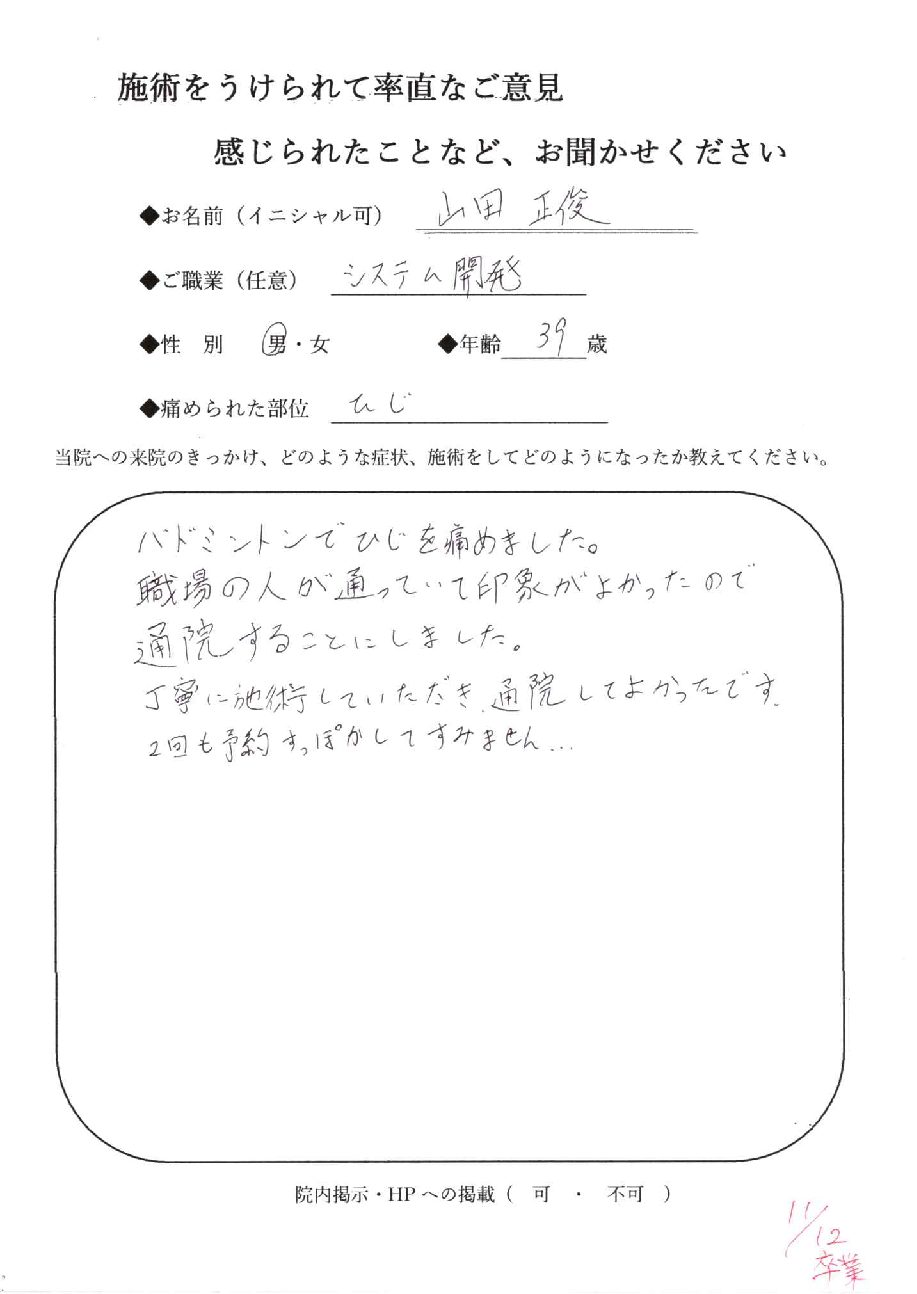 施術をうけられて率直なご意見
感じられたことなど、お聞かせください
◆お名前（イニシャル可） 山田 正俊
◆ご職業（任意） システム開発
◆性 別 男・女 ◆年齢 39 歳
◆痛められた部位 ひじ
当院への来院のきっかけ、どのような症状、施術をしてどのようになったか教えてください。
バドミントンでひじを痛めました。
職場の人が通っていて印象がよかったので
通院することにしました。
丁寧に施術していただき、通院してよかったです。
2回も予約すっぽかしてすみません...
院内掲示・HPへの掲載（ 可 ・ 不可 ）
11/12
卒業